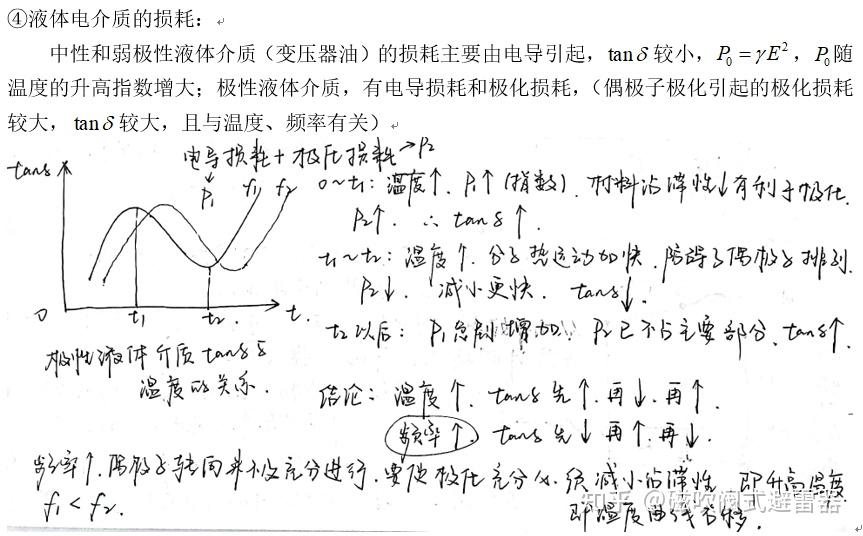 ④液体电介质的损耗：
中性和弱极性液体介质（变压器油）的损耗主要由电导引起，tanδ较小，P₀=γE²，P₀随
温度的升高指数增大；极性液体介质，有电导损耗和极化损耗，（偶极子极化引起的极化损耗
较大，tanδ较大，且与温度、频率有关）
电导损耗+极化损耗→P₂
P₁
tanδ
f₁ f₂
0 t₁ t₂ t.
极性液体介质tanδ与
温度的关系.
0~t₁：温度↑. P₁↑(指数). 材料粘滞性↓有利于极化.
P₂↑. ∴ tanδ↑.
t₁~t₂：温度↑. 分子热运动加快. 阻碍了偶极子排列.
P₂↓. 减小更快. tanδ↓.
t₂以后：P₁急剧增加. P₂已不占主要部分. tanδ↑.
结论：温度↑. tanδ先↑.再↓.再↑.
频率↑. tanδ先↓再↑.再↓.
频率↑.偶极子转向并不充分进行.要使极化充分 须减小粘滞性 即升高温度
f₁<f₂.
即温度曲线右移.
知乎 @磁吹阀式避雷器